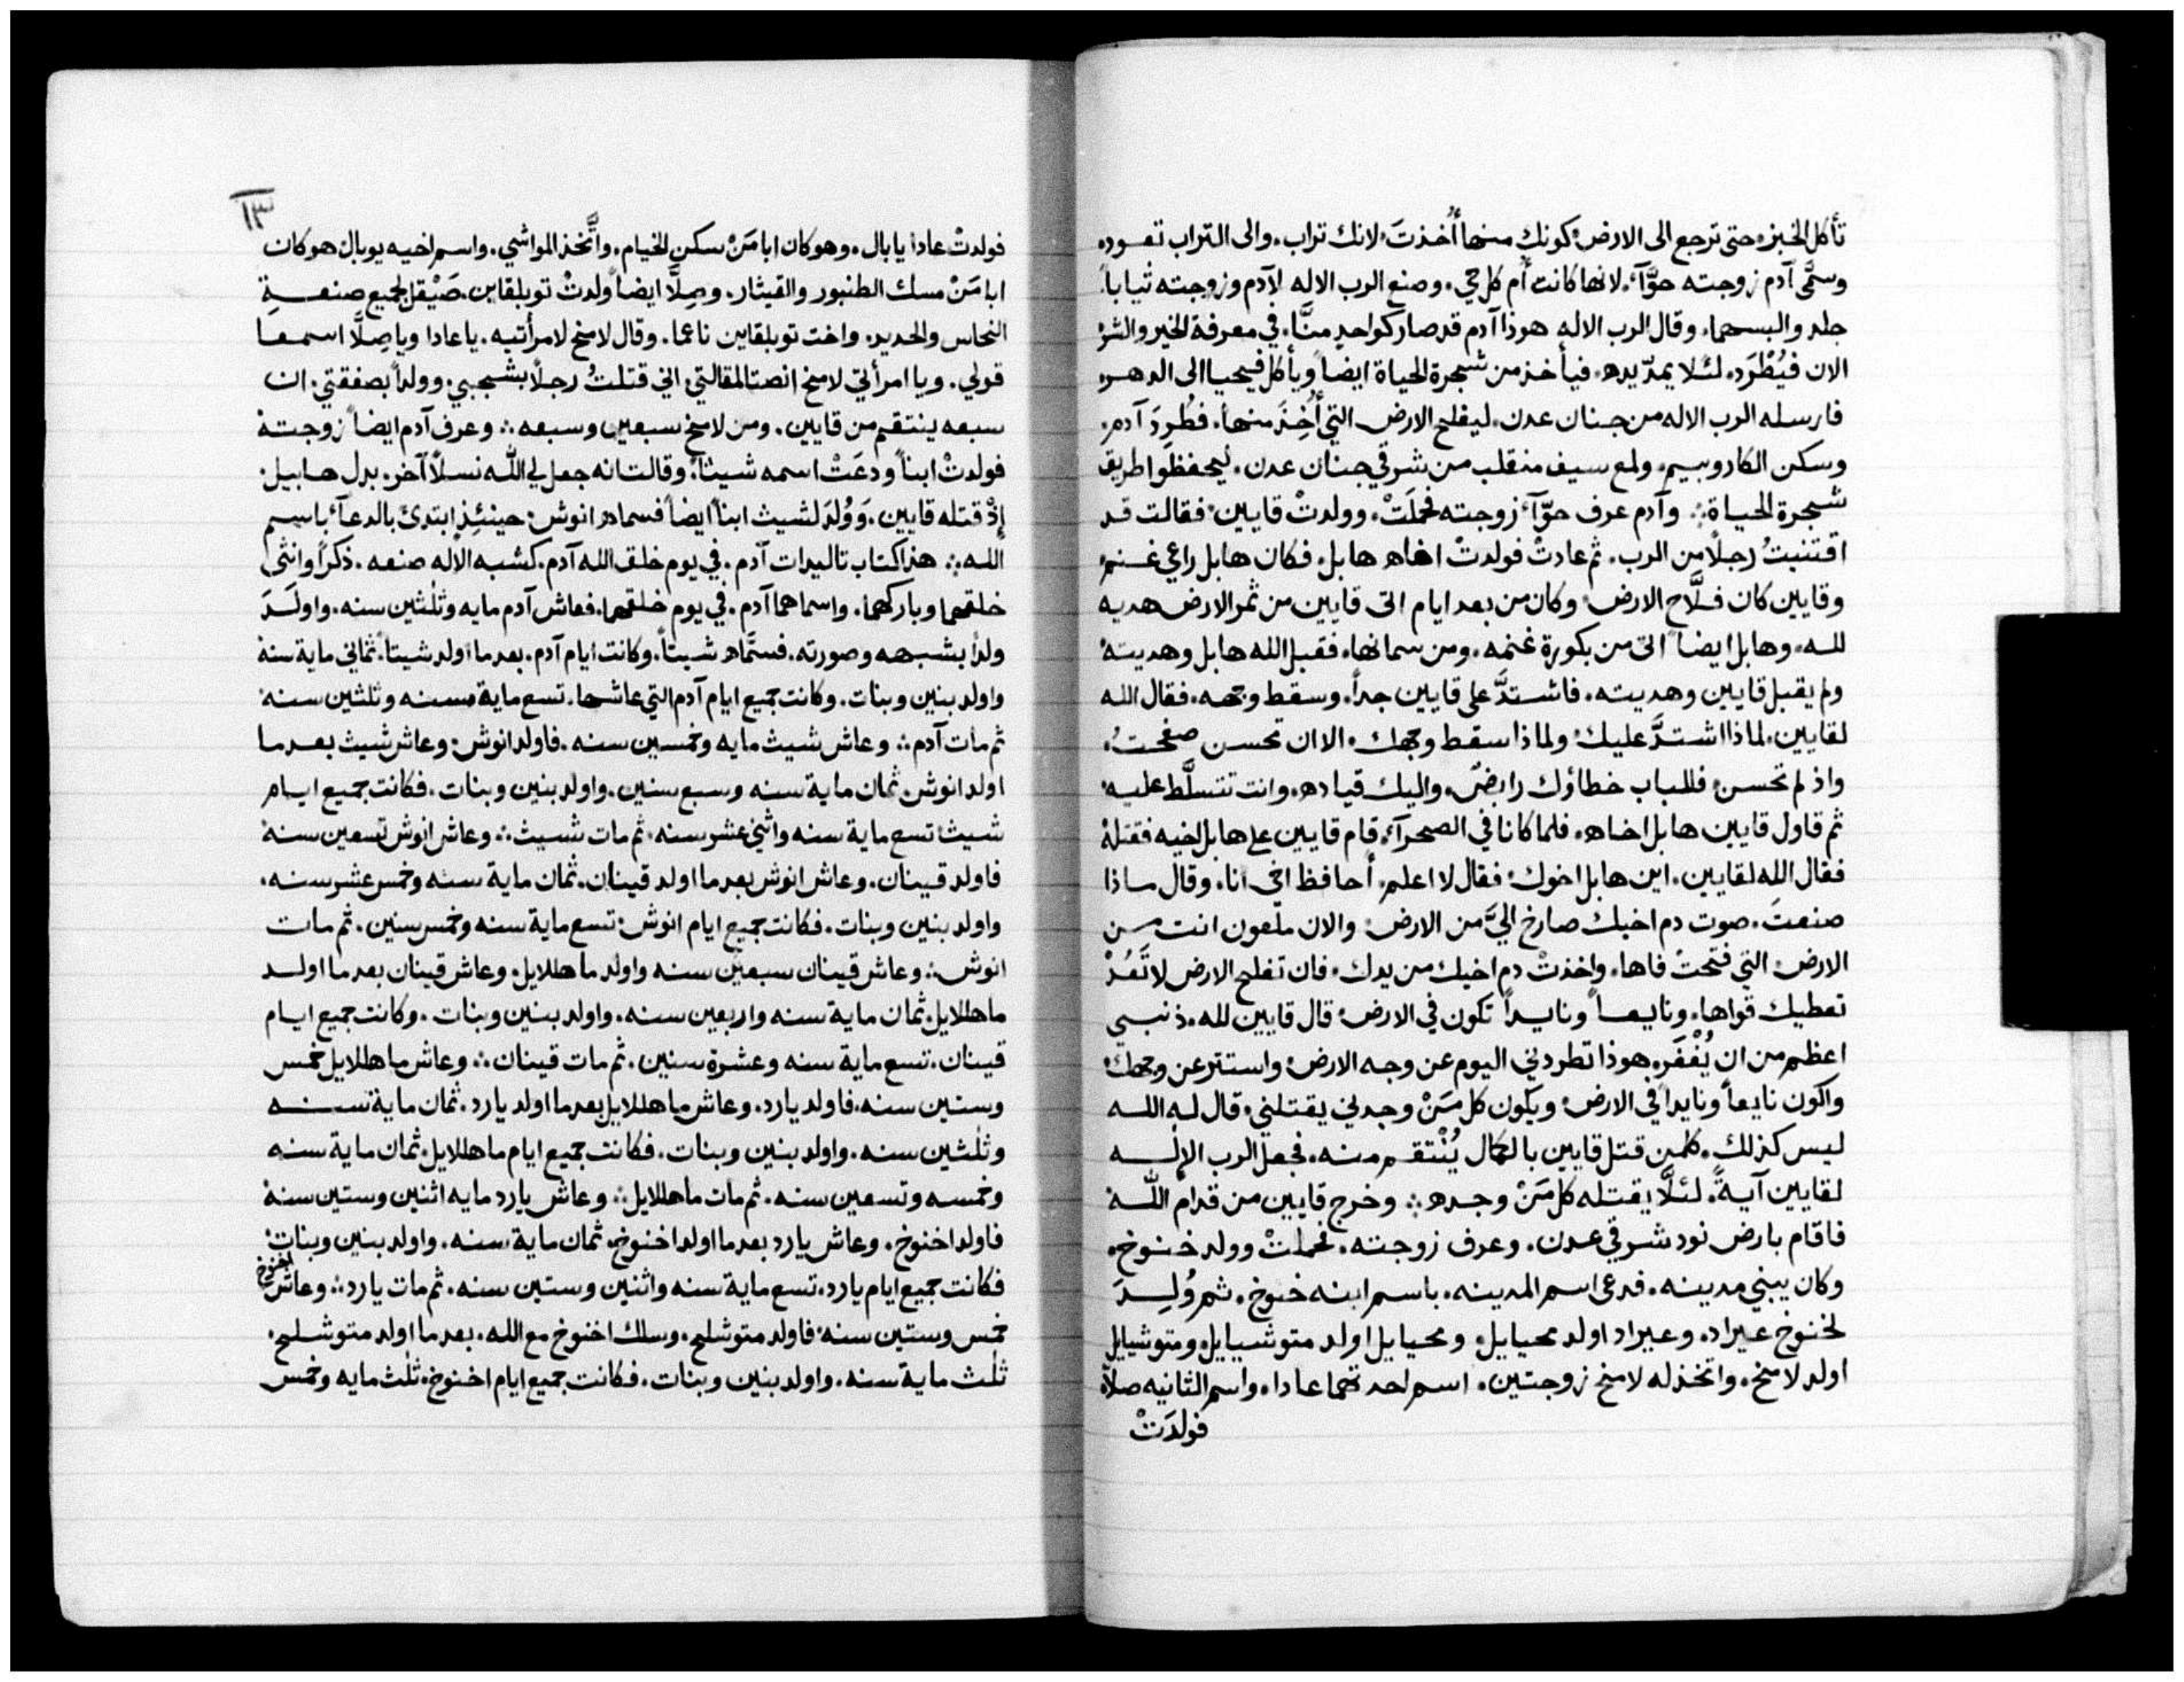 تأكل الخبز، حتى ترجع الى الارض، كونك منها أُخذتَ، لانك تراب، والى التراب تعود،
وسمَّى آدم زوجته حوَّآء، لانها كانت أُم كل حي، وصنع الرب الاله لآدم وزوجته ثياباً،
جلد والبسهما، وقال الرب الاله هوذا آدم قد صار كواحدٍ منَّا، في معرفة الخير والشر،
الان فيُطْرَد، لئلا يمدّ يده، فيأخذ من شجرة الحياة ايضاً ويأكل فيحيا الى الدهر،
فارسله الرب الاله من جنان عدن، ليفلح الارض التي أُخِذَ منها، فطُرِدَ آدم،
وسكن الكاروبيم، ولمع سيف منقلب من شرقي جنان عدن، ليحفظوا طريق
شجرة الحياة ؞ وآدم عرف حوّآء زوجته فحملَتْ، وولدتْ قايين، فقالت قد
اقتنيتُ رجلاً من الرب، ثم عادتْ فولدتْ اخاه هابل، فكان هابل راعي غنم،
وقايين كان فلَّاح الارض، وكان من بعد ايام اتى قايين من ثمر الارض هديه
لله، وهابل ايضاً اتى من بكورة غنمه، ومن سمانها، فقبل الله هابل وهديته،
ولم يقبل قايين وهديته، فاشتدَّ على قايين جداً، وسقط وجهه، فقال الله
لقايين، لماذا اشتدَّ عليك، ولماذا سقط وجهك، الا ان تحسن صفحتُ،
واذ لم تحسن، فللباب خطاؤك رابضٌ، واليك قياده، وانت تتسلَّط عليه،
ثم قاول قايين هابل اخاه، فلما كانا في الصحرآء، قام قايين على هابل اخيه فقتله
فقال الله لقايين، اين هابل اخوك، فقال لا اعلم، أحافظ اخي انا، وقال ماذا
صنعتَ، صوت دم اخيك صارخ اليَّ من الارض، والان ملعون انت من
الارض، التي فتحتْ فاها، واخذتْ دم اخيك من يدك، فان تفلح الارض لا تَعُدْ
تعطيك قواها، ونايعاً ونايداً تكون في الارض، قال قايين لله، ذنبي
اعظم من ان يُغْفَر، هوذا تطردني اليوم عن وجه الارض، واستتر عن وجهك،
واكون نايعاً ونايداً في الارض، ويكون كل مَنْ وجدني يقتلني، قال له الله
ليس كذلك، كلمن قتل قايين بالكمال يُنْتقم منه، فجعل الرب الإله
لقايين آيةً، لئلَّا يقتله كل مَنْ وجده ؞ وخرج قايين من قدام الله
فاقام بارض نود شرقي عدن، وعرف زوجته، فحملتْ وولد خنوخ،
وكان يبني مدينه، فدعى اسم المدينه، باسم ابنه خنوخ، ثم وُلِدَ
لخنوخ عيراد، وعيراد اولد محيايل، ومحيايل اولد متوشيايل، ومتوشيايل
اولد لامخ، واتخذ له لامخ زوجتين، اسم احدتهما عادا، واسم الثانيه صلاَّ،
فولدَتْ
١٣
فولدتْ عادا يابال، وهو كان ابا مَنْ سكن الخيام، واتَّخذ المواشي، واسم اخيه يوبال، هو كان
ابا مَنْ مسك الطنبور والقيثار، وصِلَّا ايضاً ولدتْ توبلقاين، صَيْقل لجميع صنعةِ
النحاس والحديد، واخت توبلقايين ناعما، وقال لامخ لامرأتيه، يا عادا ويا صِلَّا اسمعا
قولي، ويا امرأتي لامخ انصتا لمقالتي، اني قتلتُ رجلاً بشجبي، وولداً بصفقتي، ان
سبعه ينتقم من قايين، ومن لامخ سبعين وسبعه ؞ وعرف آدم ايضاً زوجته
فولدتْ ابناً ودعَتْ اسمه شيثاً، وقالت انه جعل لي الله نسلاً آخر، بدل هابيل،
إِذْ قتله قايين، وَوُلِدَ لشيث ابناً ايضاً فسماه انوش، حينئِذٍ ابتدئ بالدعآء باسم
الله ؞ هذا كتاب تاليدات آدم، في يوم خلق الله آدم، كشبه الإله صنعه، ذكراً وانثى
خلقهما وباركهما، واسماهما آدم، في يوم خلقهما، فعاش آدم مايه وثلثين سنه، واولَدَ
ولداً بشبهه وصورته، فسمَّاه شيثاً، وكانت ايام آدم، بعد ما اولد شيثاً، ثماني ماية سنة
واولد بنين وبنات، وكانت جميع ايام آدم التي عاشها، تسع ماية سنه وثلثين سنة
ثم مات آدم ؞ وعاش شيث مايه وخمسين سنه، فاولد انوش، وعاش شيث بعد ما
اولد انوش، ثمان ماية سنه وسبع سنين، واولد بنين وبنات، فكانت جميع ايام
شيث تسع ماية سنه واثني عشر سنه، ثم مات شيث ؞ وعاش انوش تسعين سنة
فاولد قينان، وعاش انوش بعد ما اولد قينان، ثمان ماية سنه وخمس عشر سنه،
واولد بنين وبنات، فكانت جميع ايام انوش، تسع ماية سنه وخمس سنين، ثم مات
انوش ؞ وعاش قينان سبعين سنه واولد ماهللايل، وعاش قينان بعد ما اولد
ماهللايل، ثمان ماية سنه واربعين سنه، واولد بنين وبنات، وكانت جميع ايام
قينان، تسع ماية سنه وعشرة سنين، ثم مات قينان ؞ وعاش ماهللايل خمس
وستين سنه، فاولد يارد، وعاش ماهللايل بعد ما اولد يارد، ثمان ماية سنه
وثلثين سنه، واولد بنين وبنات، فكانت جميع ايام ماهللايل، ثمان ماية سنه
وخمسه وتسعين سنه، ثم مات ماهللايل ؞ وعاش يارد مايه اثنين وستين سنة
فاولد اخنوخ، وعاش يارد بعد ما اولد اخنوخ، ثمان ماية سنه، واولد بنين وبنات،
فكانت جميع ايام يارد، تسع ماية سنه واثنين وستين سنه، ثم مات يارد ؞ وعاش اخنوخ
خمس وستين سنة، فاولد متوشلح، وسلك اخنوخ مع الله، بعد ما اولد متوشلح،
ثلث ماية سنه، واولد بنين وبنات، فكانت جميع ايام اخنوخ، ثلث مايه وخمس